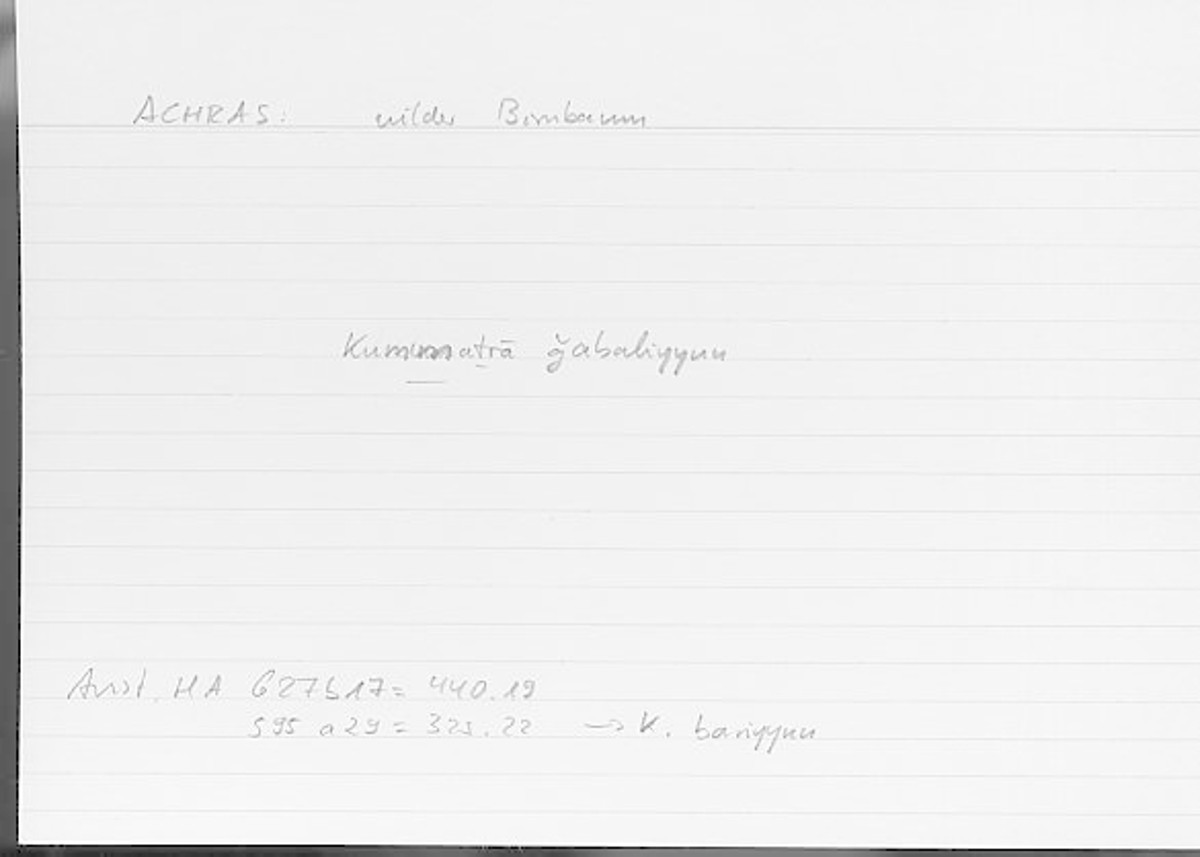 ACHRAS: wilder Birnbaum
Kummaṯrā ǧabaliyyun
Arist. HA 627b17 = 440.19
595 a29 = 325.22 → K. barriyyun